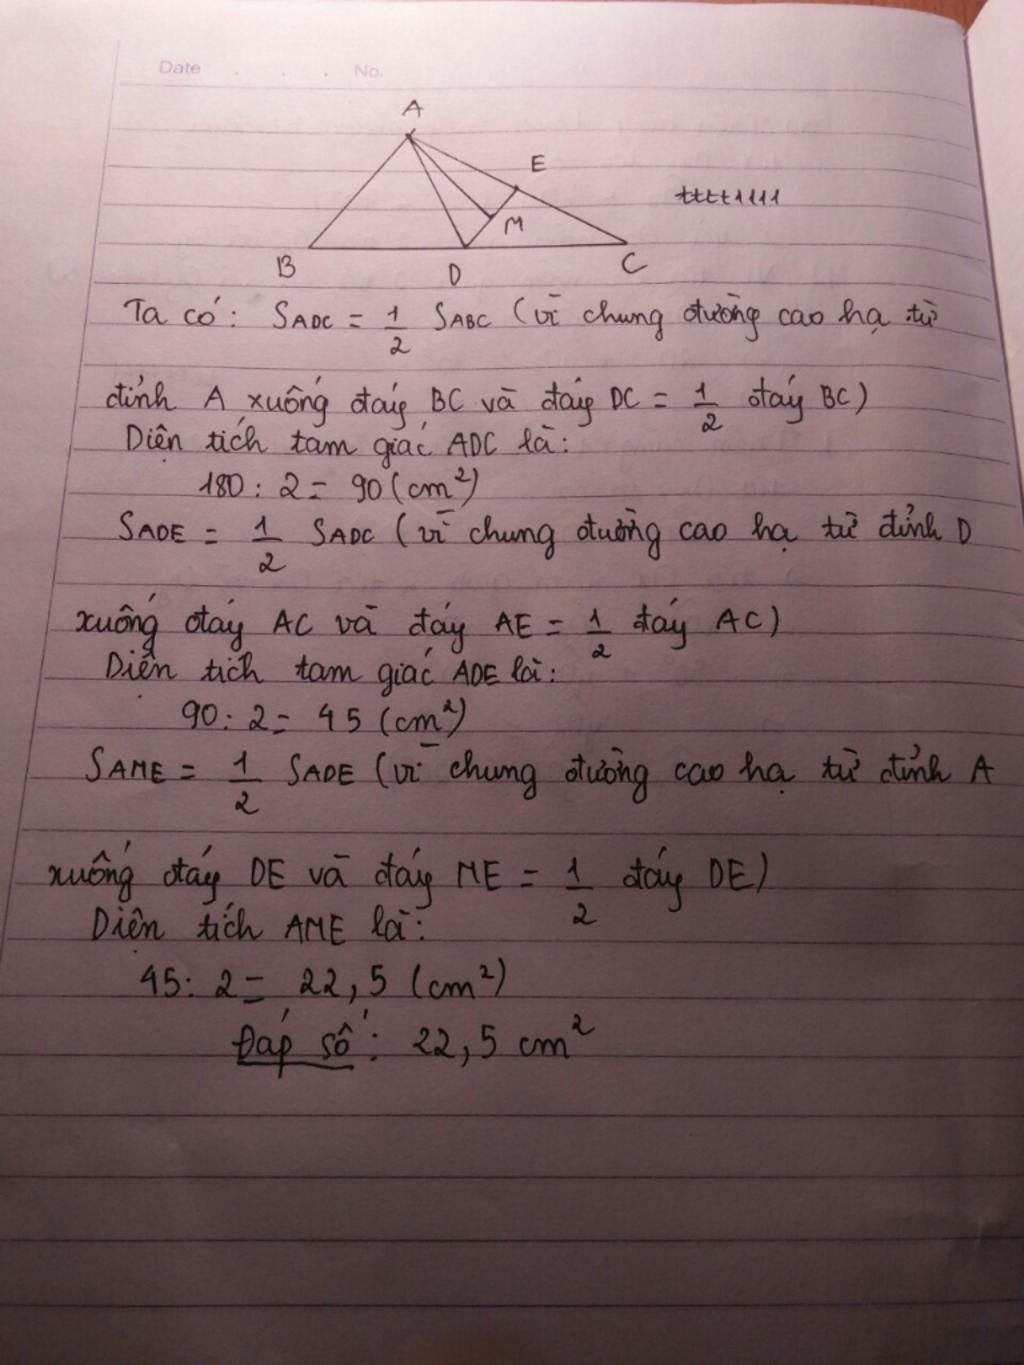 Date . . . No.
A
E
tttt1111
M
B D C
Ta có: SADC = 1/2 SABC (vì chung đường cao hạ từ
đỉnh A xuống đáy BC và đáy DC = 1/2 đáy BC)
Diện tích tam giác ADC là:
180 : 2 = 90 (cm²)
SADE = 1/2 SADC (vì chung đường cao hạ từ đỉnh D
xuống đáy AC và đáy AE = 1/2 đáy AC)
Diện tích tam giác ADE là:
90 : 2 = 45 (cm²)
SAME = 1/2 SADE (vì chung đường cao hạ từ đỉnh A
xuống đáy DE và đáy ME = 1/2 đáy DE)
Diện tích AME là:
45 : 2 = 22,5 (cm²)
Đáp số : 22,5 cm²